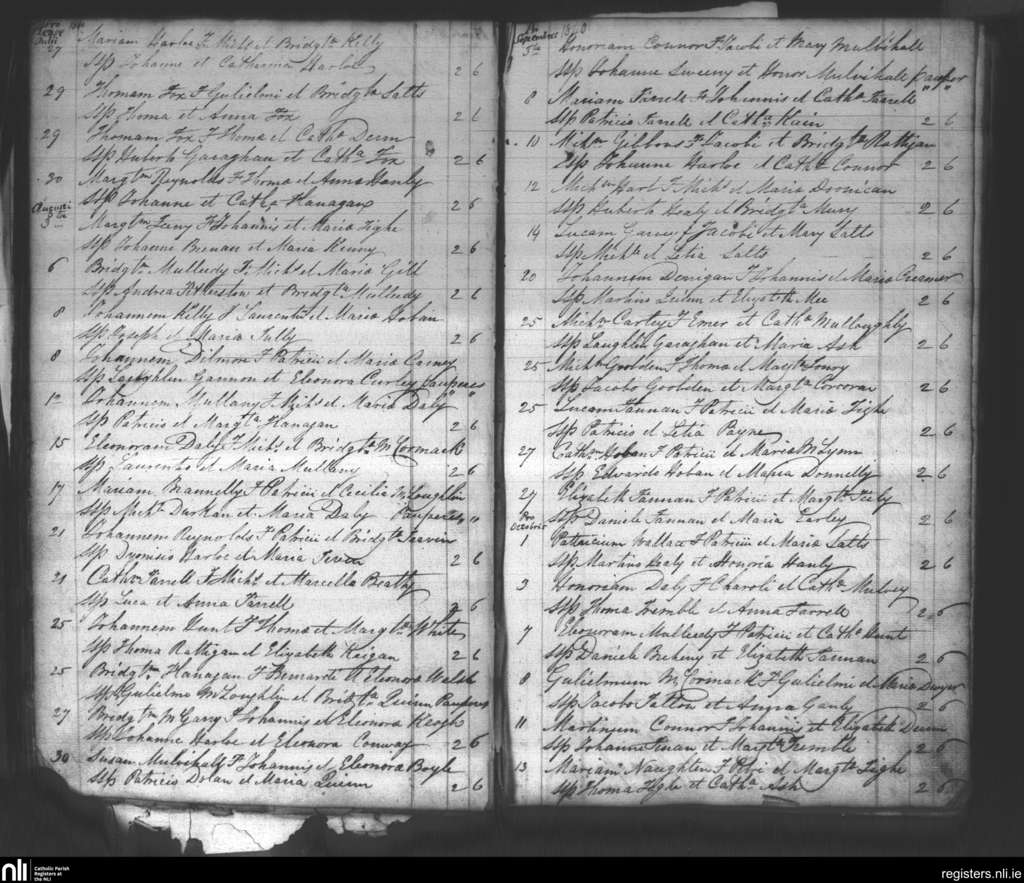 Julii
27 Mariam Harloe F Michs et Bridgta Kelly
SSp Johanne et Catharina Harloe 2 6
29 Thomam Fox F Gulielmi et Bridgta Latts
SSp Thoma et Anna Fox 2 6
29 Thomam Fox F Thoma et Catha
SSp Huberto Garaghan et Catha Fox 2 6
30 Margtm Reynolds F Thoma et Anna Hanly
SSp Johanne et Catha Flanagan 2 6
Augusti
Margtm F Johannis et Maria Tighe
SSp Johanne Brenan et Maria Kenny 2 6
6 Bridgtm Mulledy F Michs et Maria Gill
SSp Andrea et Bridgta Mulledy 2 6
8 Johannem Kelly F Laurentii et Maria Hoban
SSp Joseph et Maria Tully 2 6
8 Johannem Dilmon F Patricii et Maria Carney
SSp Laughlen Gannon et Eleonora Curley Pauperes
12 Johannem Mullany F Michs et Maria Daly " "
SSp Patricio et Margta Flanagan 2 6
15 Eleonoram Daly F Michs et Bridgta McCormack
SSp Laurentio et Maria Mullany 2 6
17 Mariam Brannelly F Patricii et Cecilia McLoughlin
SSp Michs Durkan et Maria Daly Pauperes "
21 Johannem Reynolds F Patricii et Bridgta
SSp Dyonisio Harloe et Maria 2 6
21 Cathm Farrell F Michs et Marcella Beatty
SSp Luca et Anna Farrell 2 6
25 Johannem Hunt F Thoma et Margta White
SSp Thoma Rattigan et Elizabeth Keigan 2 6
25 Bridgtm Flanagan F Bernardi et Eleonora Welsh
SSp Gulielmo McLoughlin et Bridgta Quinn Pauperes
27 Bridgtm McGary F Johannis et Eleonora Keogh
SSp Johanne Harloe et Eleonora Conway 2 6
30 Susan Mulvihall F Johannis et Eleonora Boyle
SSp Patricio Dolan et Maria Quinn 2 6
Septembris
5th Honoriam Connor F Jacobi et Mary Mulvihall
SSp Johanne Sweeny et Honor Mulvihall pauper
8 Mariam Farrell F Johannis et Catha Farrell " "
SSp Patricio Farrell et Catha 2 6
10 Michm Gibbons F Jacobi et Bridgta Rattigan
SSp Johanne Harloe et Catha Connor 2 6
12 Michm Hart F Michs et Maria Doonican
SSp Huberto Healy et Bridgta 2 6
14 Lucam Carney F Jacobi et Mary Latts
SSp Michs et Letia Latts 2 6
20 Johannem Donigan F Johannis et Maria Creamer
SSp Martino et Elizabeth Mee 2 6
25 Michm Carley F Emer et Catha Mulloughly
SSp Laughlin Garaghan et Maria Ash 2 6
25 Michm Goolden F Thoma et Margta Lowry
SSp Jacobo Goolden et Margta Corcoran 2 6
25 Lucam Fannan F Patricii et Maria Tighe
SSp Patricio et Letia Payne 2 6
27 Cathm Hoban F Patricii et Maria McLynn
SSp Edwardo Hoban et Maria Donnelly 2 6
27 Elizabeth Fannan F Patricii et Margta
SSp Daniele Fannan et Maria Earley 2 6
Pro Octobris
1 Patricium Wallace F Patricii et Maria Latts
SSp Martino Healy et Honoria Hanly 2 6
3 Honoriam Daly F Charoli et Catha Mulvey
SSp Thoma Tremble et Anna Farrell 2 6
7 Eleonoram Mulledy F Patricii et Catha Hunt
SSp Daniele Beheny et Elizabeth Fannan 2 6
8 Gulielmum McCormack F Gulielmi et Maria Dwyer
SSp Jacobo Patton et Anna Ganly 2 6
11 Martinum Connor F Johannis et Elizabeth
SSp Johanne et Margta Tremble 2 6
13 Mariam Naughten F Petri et Margta Tighe
SSp Thoma Tighe et Catha Ash 2 6
nli Catholic Parish
Registers at
the NLI
registers.nli.ie